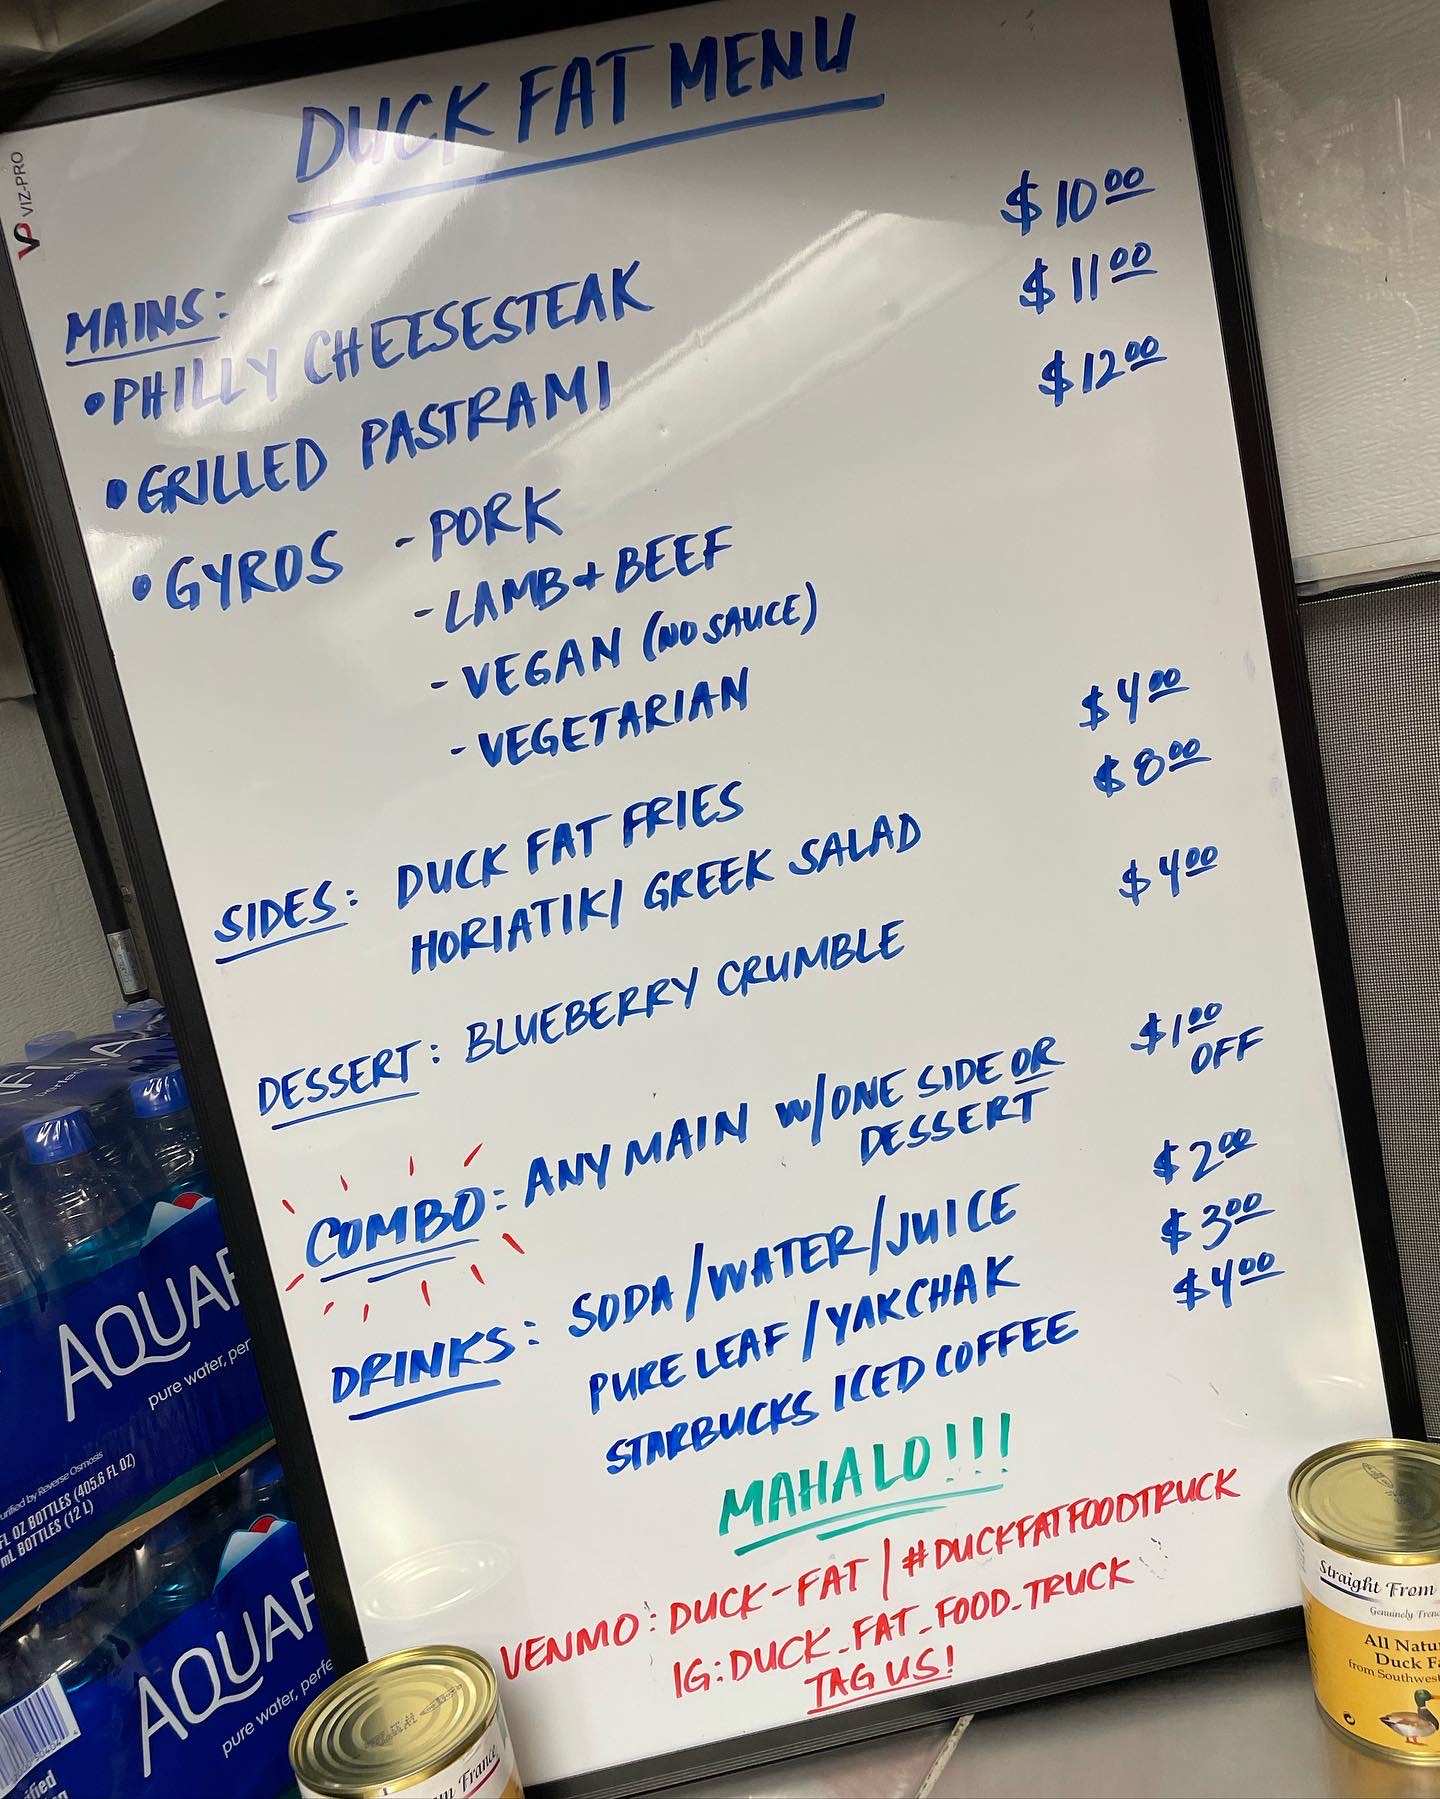 DUCK FAT MENU
VP VIZ-PRO
MAINS:
•PHILLY CHEESESTEAK $10.00
•GRILLED PASTRAMI $11.00
•GYROS -PORK $12.00
-LAMB+BEEF
-VEGAN (NO SAUCE)
-VEGETARIAN
SIDES: DUCK FAT FRIES $4.00
HORIATIKI GREEK SALAD $8.00
DESSERT: BLUEBERRY CRUMBLE $4.00
COMBO: ANY MAIN W/ONE SIDE OR DESSERT $1.00 OFF
DRINKS: SODA/WATER/JUICE $2.00
PURE LEAF/YAKCHAK $3.00
STARBUCKS ICED COFFEE $4.00
MAHALO!!!
VENMO: DUCK-FAT | #DUCKFATFOODTRUCK
IG: DUCK_FAT_FOOD_TRUCK
TAG US!
AQUAF
pure water, per
urified by Reverse Osmosis
FL OZ BOTTLES (405.6 FL OZ)
mL BOTTLES (12 L)
AQUAF
pure water, perfe
ified
om France
Straight From
Genuinely Fren
All Natu
Duck Fa
from Southwest